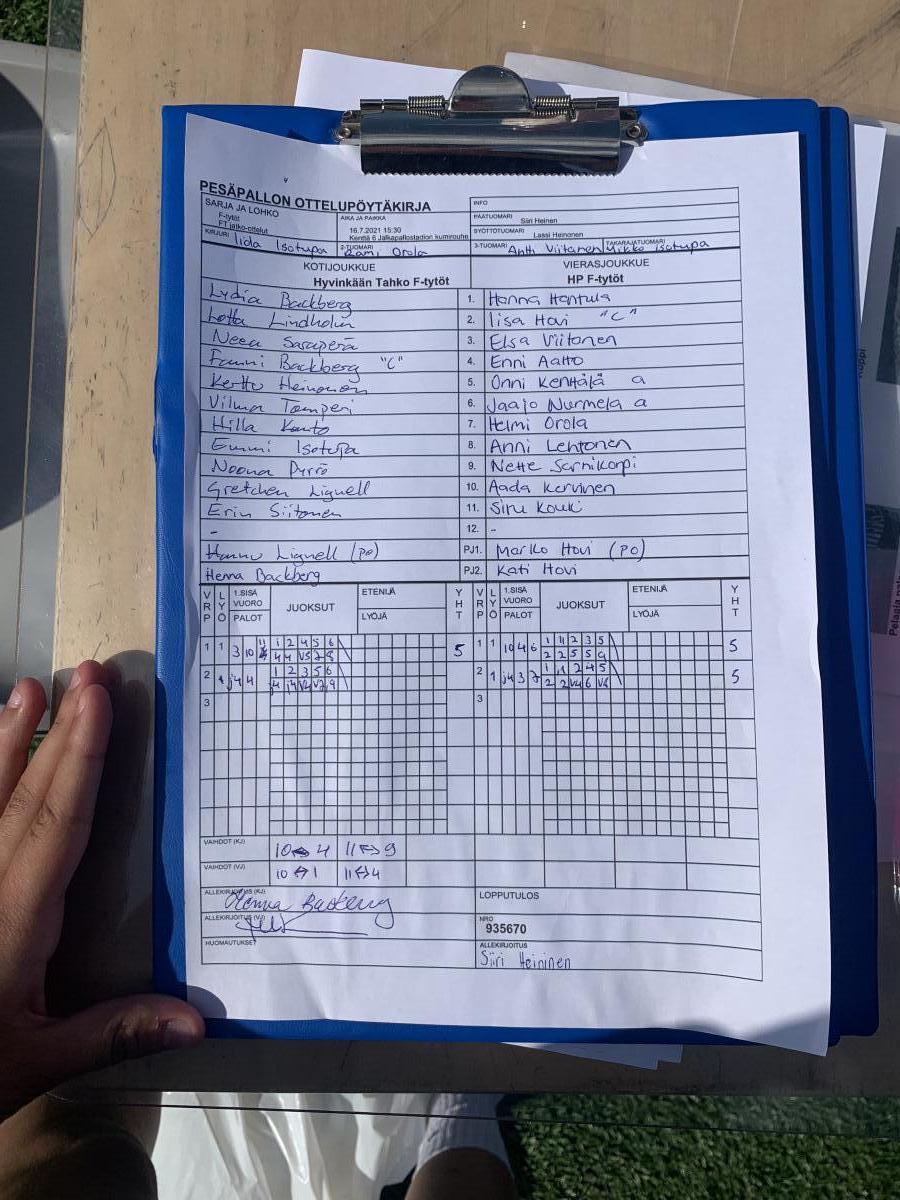 PESÄPALLON OTTELUPÖYTÄKIRJA
SARJA JA LOHKO
F-tytöt
FT jatko-ottelut
AIKA JA PAIKKA
16.7.2021 15:30
Kenttä 6 Jalkapallostadion kumirouhe
INFO
PÄÄTUOMARI Siiri Heinen
SYÖTTÖTUOMARI Lassi Heinonen
KIRJURI Iida Isotupa
2-TUOMARI Rami Orola
3-TUOMARI Antti Viitanen
TAKARAJATUOMARI Mikko Isotupa
KOTIJOUKKUE
Hyvinkään Tahko F-tytöt
VIERASJOUKKUE
HP F-tytöt
Lydia Backberg 1. Hanna Hantula
Lotta Lindholm 2. Iisa Hovi "C"
Neea Saraperä 3. Elsa Viitanen
Fanni Backberg "C" 4. Enni Aatto
Kerttu Heinonen 5. Onni Kenttälä a
Vilma Tamperi 6. Jaajo Nurmela a
Hilla Kauto 7. Helmi Orola
Emmi Isotupa 8. Anni Lehtonen
Noona Pyrrö 9. Nette Sarnikorpi
Gretchen Lignell 10. Aada Kervinen
Erin Siitonen 11. Siru Kouki
- 12. -
Hannu Lignell (PO) PJ1. Marko Hovi (PO)
Henna Backberg PJ2. Kati Hovi
VRP LYÖ 1.SISÄ VUORO PALOT JUOKSUT ETENIJÄ LYÖJÄ YHT VRP LYÖ 1.SISÄ VUORO PALOT JUOKSUT ETENIJÄ LYÖJÄ YHT
1 1 3 10 1 2 4 5 6 5 1 1 10 4 6 1 11 2 3 5 5
4 4 V5 7 8 2 2 5 5 9
2 1 j4 4 1 2 3 5 6 2 1 j4 3 7 1 11 2 4 5 5
2 2 V4 6 V6
3 3
VAIHDOT (KJ) 10↔4 11↔9
VAIHDOT (VJ) 10↔1 11↔4
ALLEKIRJOITUS (KJ) Henna Backberg
LOPPUTULOS
ALLEKIRJOITUS (VJ)
NRO
935670
HUOMAUTUKSET
ALLEKIRJOITUS
Siiri Heininen